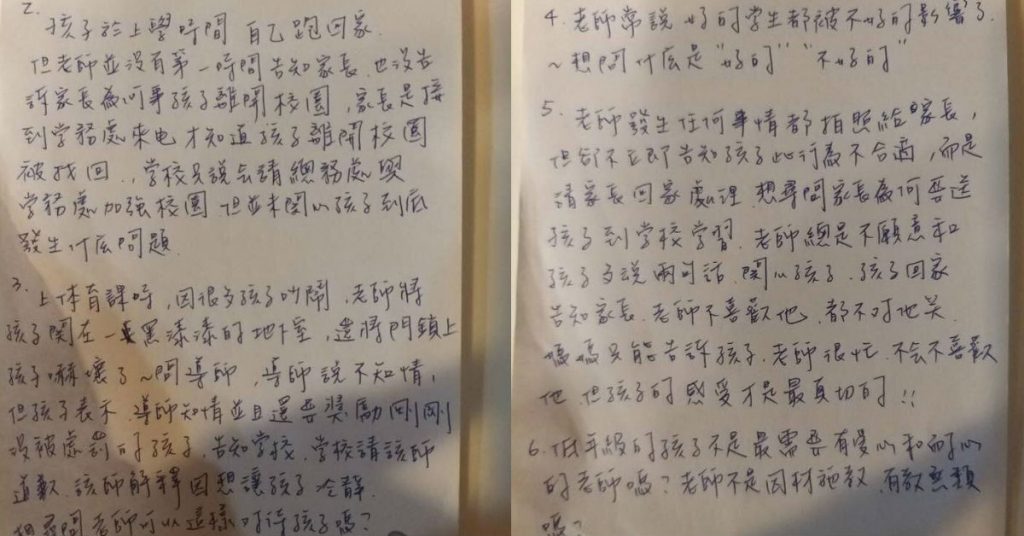 2.
孩子於上學時間 自己跑回家.
但老師並沒有第一時間告知家長.也沒告
訴家長為何事孩子離開校園,家長是接
到学務處來电才知道孩子離開校園
被找回.,学校只說会請總務處與
学務處加強校園 但並未関心孩子到底
發生什広問題
3. 上体育課時,因很多孩子吵鬧,老師將
孩子関在一黑漆漆的地下室,還將門鎖上
孩子嚇壞了~問導師,導師說不知情,
但孩子表示.導師知情並且還要獎勵剛剛
沒被處罰的孩子.告知学校.学校請該師
道歉.該師解釋因想讓孩子冷靜.
想尋問老師可以這樣対待孩子嗎?
4. 老師常說 好的学生都被不好的影響了.
~想問什広是"好的" "不好的"
5. 老師發生任何事情都拍照給家長,
但卻不立即告知孩子此行為不合適,而是
請家長回家處理.想尋問家長為何要送
孩子到学校学習.老師總是不願意和
孩子多說兩句話.関心孩子.孩子回家
告知家長.老師不喜歡他.都不対他笑.
媽媽只能告訴孩子.老師很忙.不会不喜歡
他 但孩子的感受才是最真切的!!
6. 低年級的孩子不是最需要有愛心和耐心
的老師嗎?老師不是因材施教.有教無類
嗎?